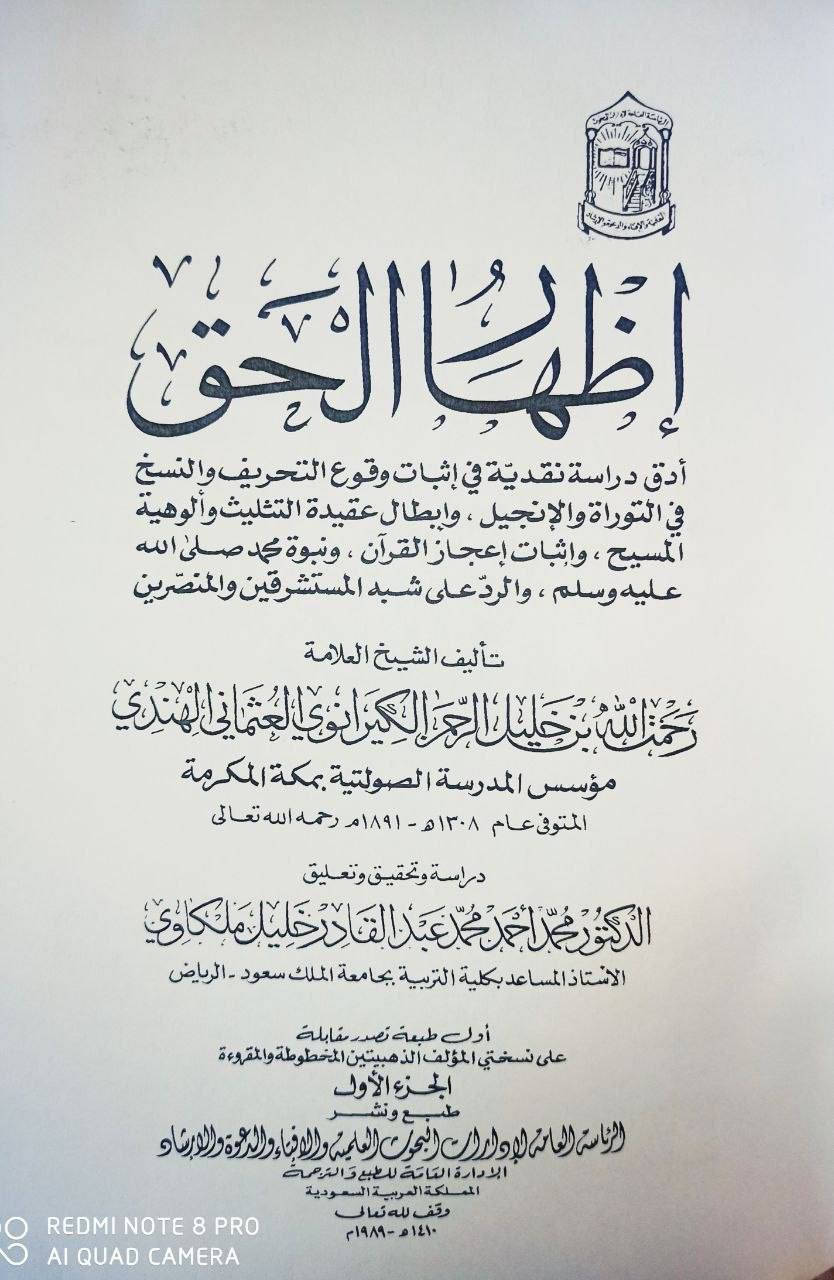 إظهار الحق
أدق دراسة نقديّة في إثبات وقوع التحريف والنسخ
في التوراة والإنجيل ، وإبطال عقيدة التثليث وألوهية
المسيح ، وإثبات إعجاز القرآن ، ونبوة محمد صلى الله
عليه وسلم ، والردّ على شبه المستشرقين والمنصّرين
تأليف الشيخ العلامة
رحمت الله بن خليل الرحمن الكيرانوي العثماني الهندي
مؤسس المدرسة الصولتية بمكة المكرمة
المتوفى عام ١٣٠٨هـ - ١٨٩١م رحمه الله تعالى
دراسة وتحقيق وتعليق
الدكتور محمد أحمد محمد عبد القادر خليل ملكاوي
الأستاذ المساعد بكلية التربية بجامعة الملك سعود - الرياض
أول طبعة تصدر مقابلة
على نسختي المؤلف الذهبيتين المخطوطة والمقروءة
الجزء الأول
طبع ونشر
الرئاسة العامة لإدارات البحوث العلمية والإفتاء والدعوة والإرشاد
الإدارة العامة للطبع والترجمة
المملكة العربية السعودية
وقف لله تعالى
١٤١٠هـ - ١٩٨٩م
REDMI NOTE 8 PRO
AI QUAD CAMERA